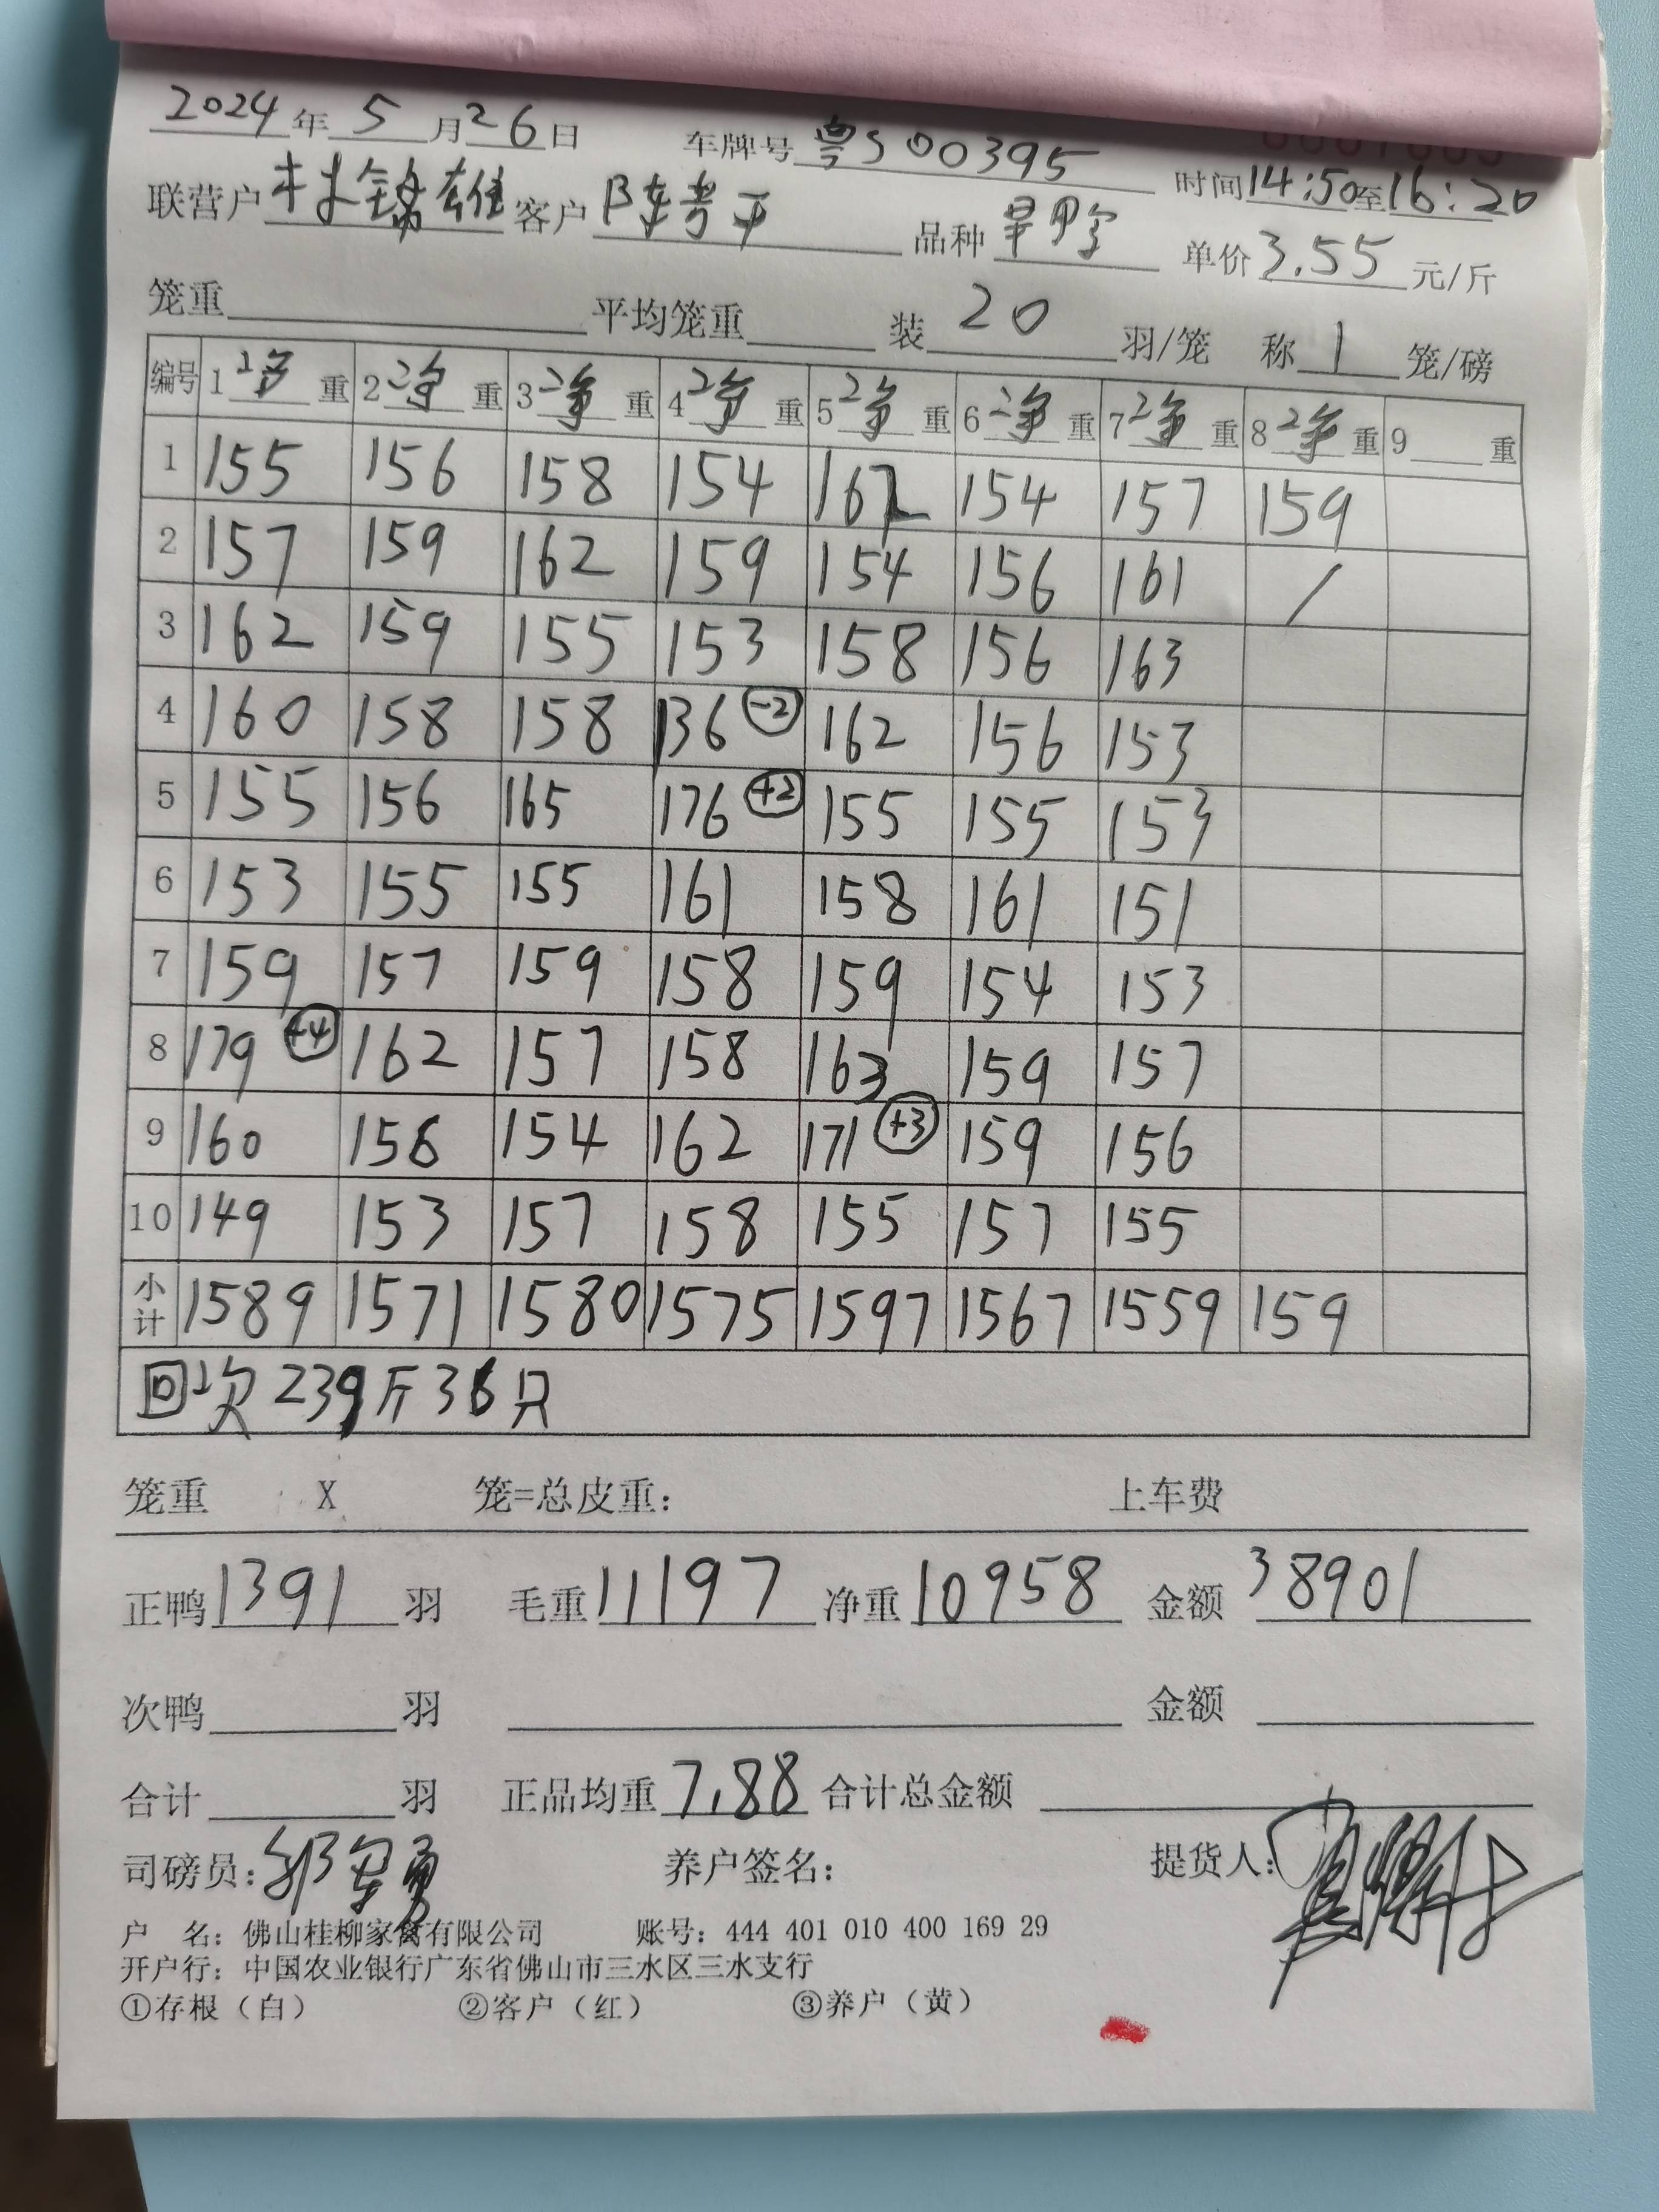 2024年5月26日 车牌号粤S00395
联营户林锦雄客户陈考平 品种 单价3.55元/斤 时间14:50至16:20
笼重 平均笼重 装20羽/笼 称1笼/磅
编号 1净重 2净重 3净重 4净重 5净重 6净重 7净重 8净重 9 重
1 155 156 158 154 162 154 157 159
2 157 159 162 159 154 156 161 /
3 162 159 155 153 158 156 163
4 160 158 158 136 -2 162 156 153
5 155 156 165 176 +2 155 155 153
6 153 155 155 161 158 161 151
7 159 157 159 158 159 154 153
8 179 +4 162 157 158 163 159 157
9 160 156 154 162 171 +3 159 156
10 149 153 157 158 155 157 155
小计 1589 1571 1580 1575 1597 1567 1559 159
回次239斤36只
笼重 X 笼=总皮重: 上车费
正鸭1391羽 毛重11197 净重10958 金额38901
次鸭 羽 金额
合计 羽 正品均重7.88 合计总金额
司磅员: 养户签名: 提货人:
户 名: 佛山桂柳家禽有限公司 账号: 444 401 010 400 169 29
开户行: 中国农业银行广东省佛山市三水区三水支行
①存根（白） ②客户（红） ③养户（黄）